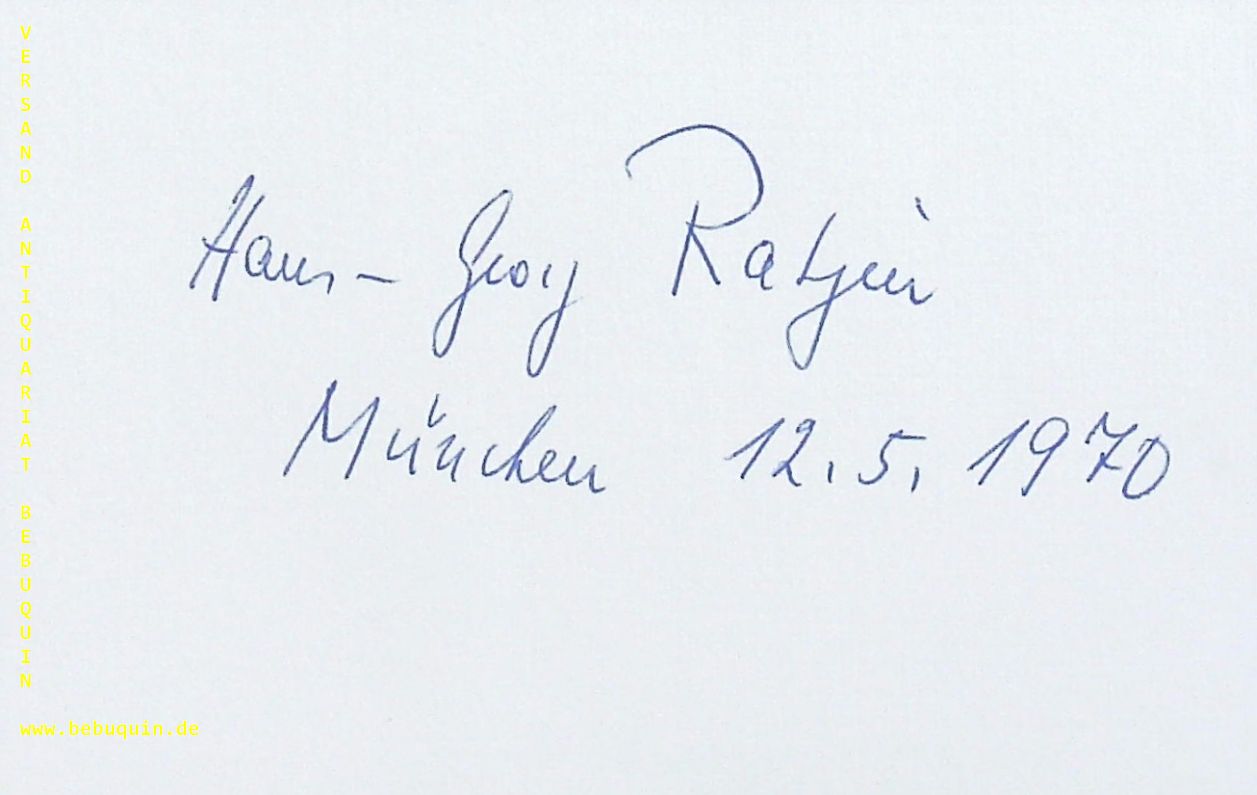 VERSAND ANTIQUARIAT BEBUQUIN
Hans-Georg Ratjen
München 12.5.1970
www.bebuquin.de